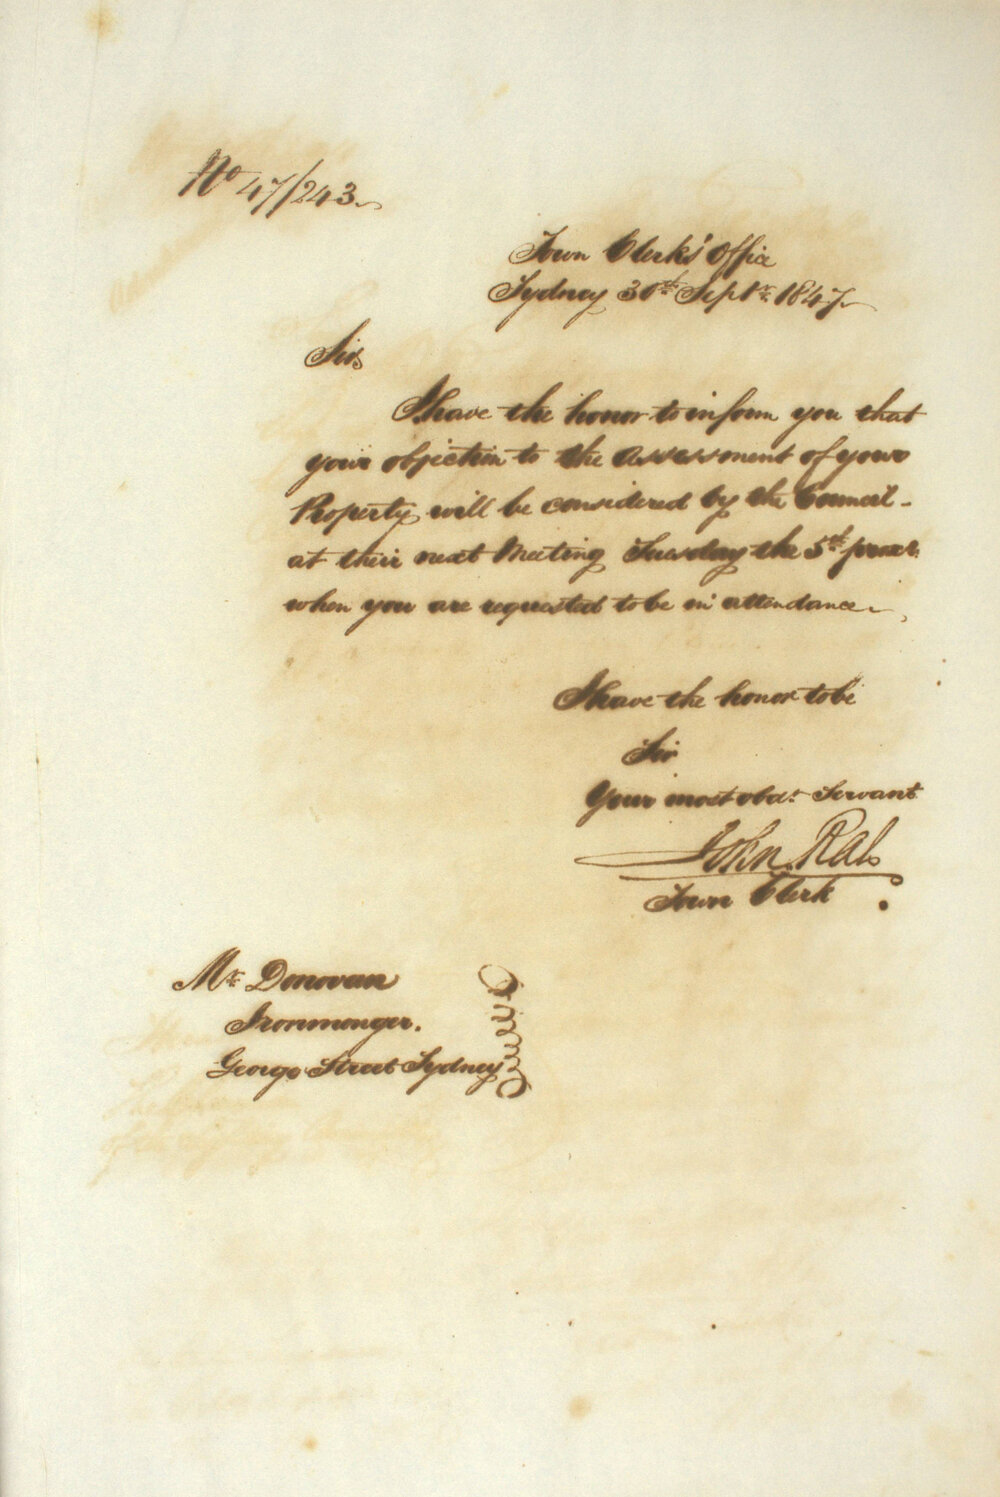 No 47/243
Town Clerk's Office
Sydney 30th Septr. 1847
Sir
I have the honor to inform you that
your objection to the Assessment of your
Property will be considered by the Council
at their next Meeting Tuesday the 5th proxo.
when you are requested to be in attendance
I have the honor to be
Sir
Your most obdt. Servant
John Rae
Town Clerk
Mr Donovan
Ironmonger.
George Street Sydney